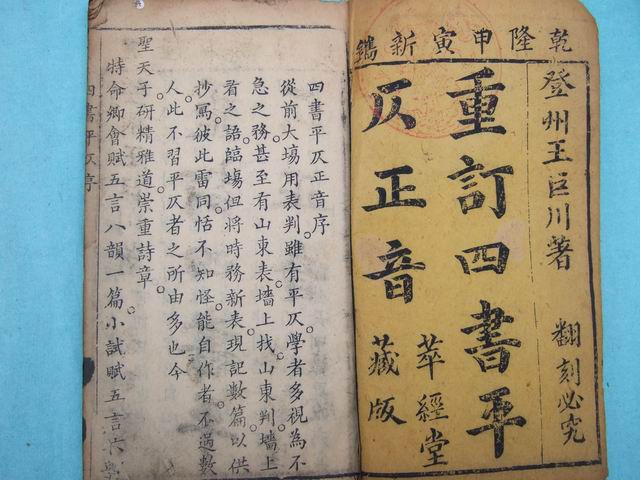 乾隆甲寅新鐫
登州王巨川著
翻刻必究
重訂四書平
仄正音
萃經堂
藏版
四書平仄正音序
從前大塲用表判雖有平仄學者多視為不
急之務甚至有山東表墻上找山東判墻上
看之語臨塲但將時務新表現記數篇以供
抄寫彼此雷同恬不知怪能自作者不過數
人此不習平仄者之所由多也今
聖天子研精雅道崇重詩章
特命鄉會賦五言八韻一篇小試賦五言六
四書平仄序